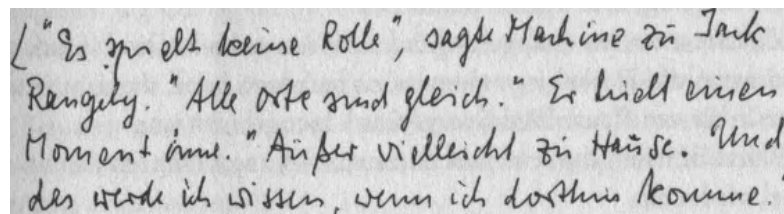 ("Es spielt keine Rolle", sagte Machine zu Jack
Rangely. "Alle Orte sind gleich." Er hielt einen
Moment inne. "Außer vielleicht zu Hause. Und
das werde ich wissen, wenn ich dorthin komme."